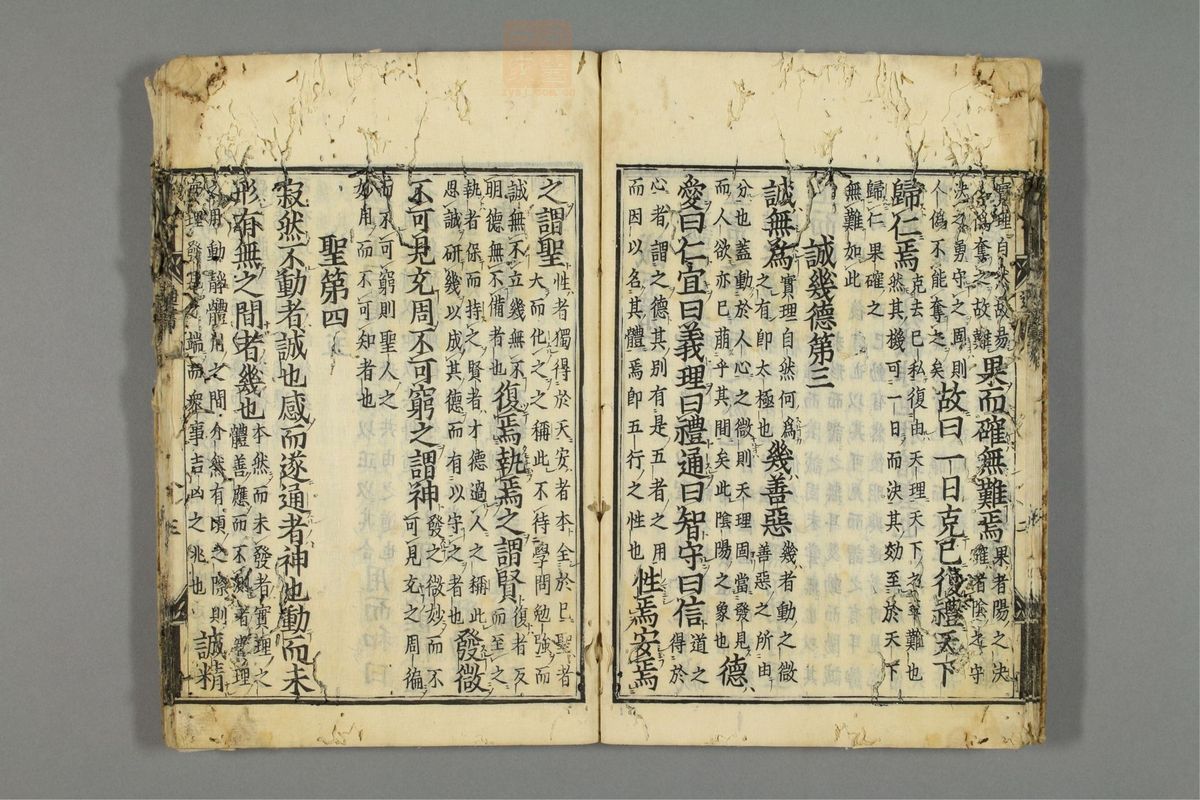 實理自然故易
人僞奪之故難
果而確無難焉
果者陽之決
確者陰之守
決之勇守之固則
人僞不能奪之矣
故曰一日克己復禮天下
歸仁焉
克去己私復由天理天下之至難也
然其機可一日而決其効至於天下
歸仁果確之
無難如此
誠幾德第三
誠無爲
實理自然何爲
之有即太極也
幾善惡
幾者動之微
善惡之所由
分也蓋動於人心之微則天理固當發見
而人欲亦已萌乎其間矣此陰陽之象也
德
愛曰仁宜曰義理曰禮通曰智守曰信
道之
得於
心者謂之德其別有是五者之用
而因以名其體焉即五行之性也
性焉安焉
之謂聖
性者獨得於天安者本全於己聖者
大而化之之稱此不待學問勉強而
誠無不立幾無不
明德無不備者也
復焉執焉之謂賢
復者反
而至之
執者保而持之賢者才德過人之稱此
思誠研幾以成其德而有以守之者也
發微
不可見充周不可窮之謂神
發之微妙而不
可見充之周徧
而不可窮則聖人之
妙用而不可知者也
聖第四
寂然不動者誠也感而遂通者神也動而未
形有無之間者幾也
本然而未發者實理之
體善應而不測者實理
之用動靜體用之間介然有頃之際則
實理發見之端而衆事吉凶之兆也
誠精